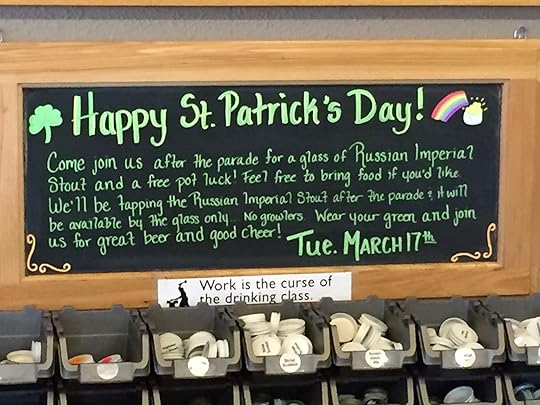 Happy St. Patrick's Day!
Come join us after the parade for a glass of Russian Imperial
Stout and a free pot luck! Feel free to bring food if you'd like.
We'll be tapping the Russian Imperial Stout after the parade & it will
be available by the glass only... No growlers. Wear your green and join
us for great beer and good cheer!
Tue. MARCH 17th
Work is the curse of
the drinking class.